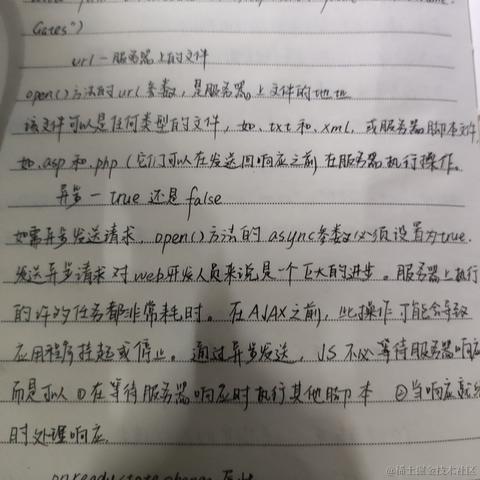 Gates")
url — 服务器上的文件
open()方法的url参数，是服务器上文件的地址
该文件可以是任何类型的文件，如.txt和.xml，或服务器脚本文件
如.asp和.php（它们可以在发送回响应之前，在服务器执行操作。
异步 — true 还是 false
如需异步发送请求，open()方法的async参数必须设置为true.
发送异步请求对web开发人员来说是一个巨大的进步。服务器上执行
的许多任务都非常耗时。在AJAX之前，此操作可能会导致
应用程序挂起或停止。通过异步发送，JS不必等待服务器响应
而是可以①在等待服务器响应时执行其他脚本 ②当响应就绪
时处理响应.
onreadystatechange
@稀土掘金技术社区